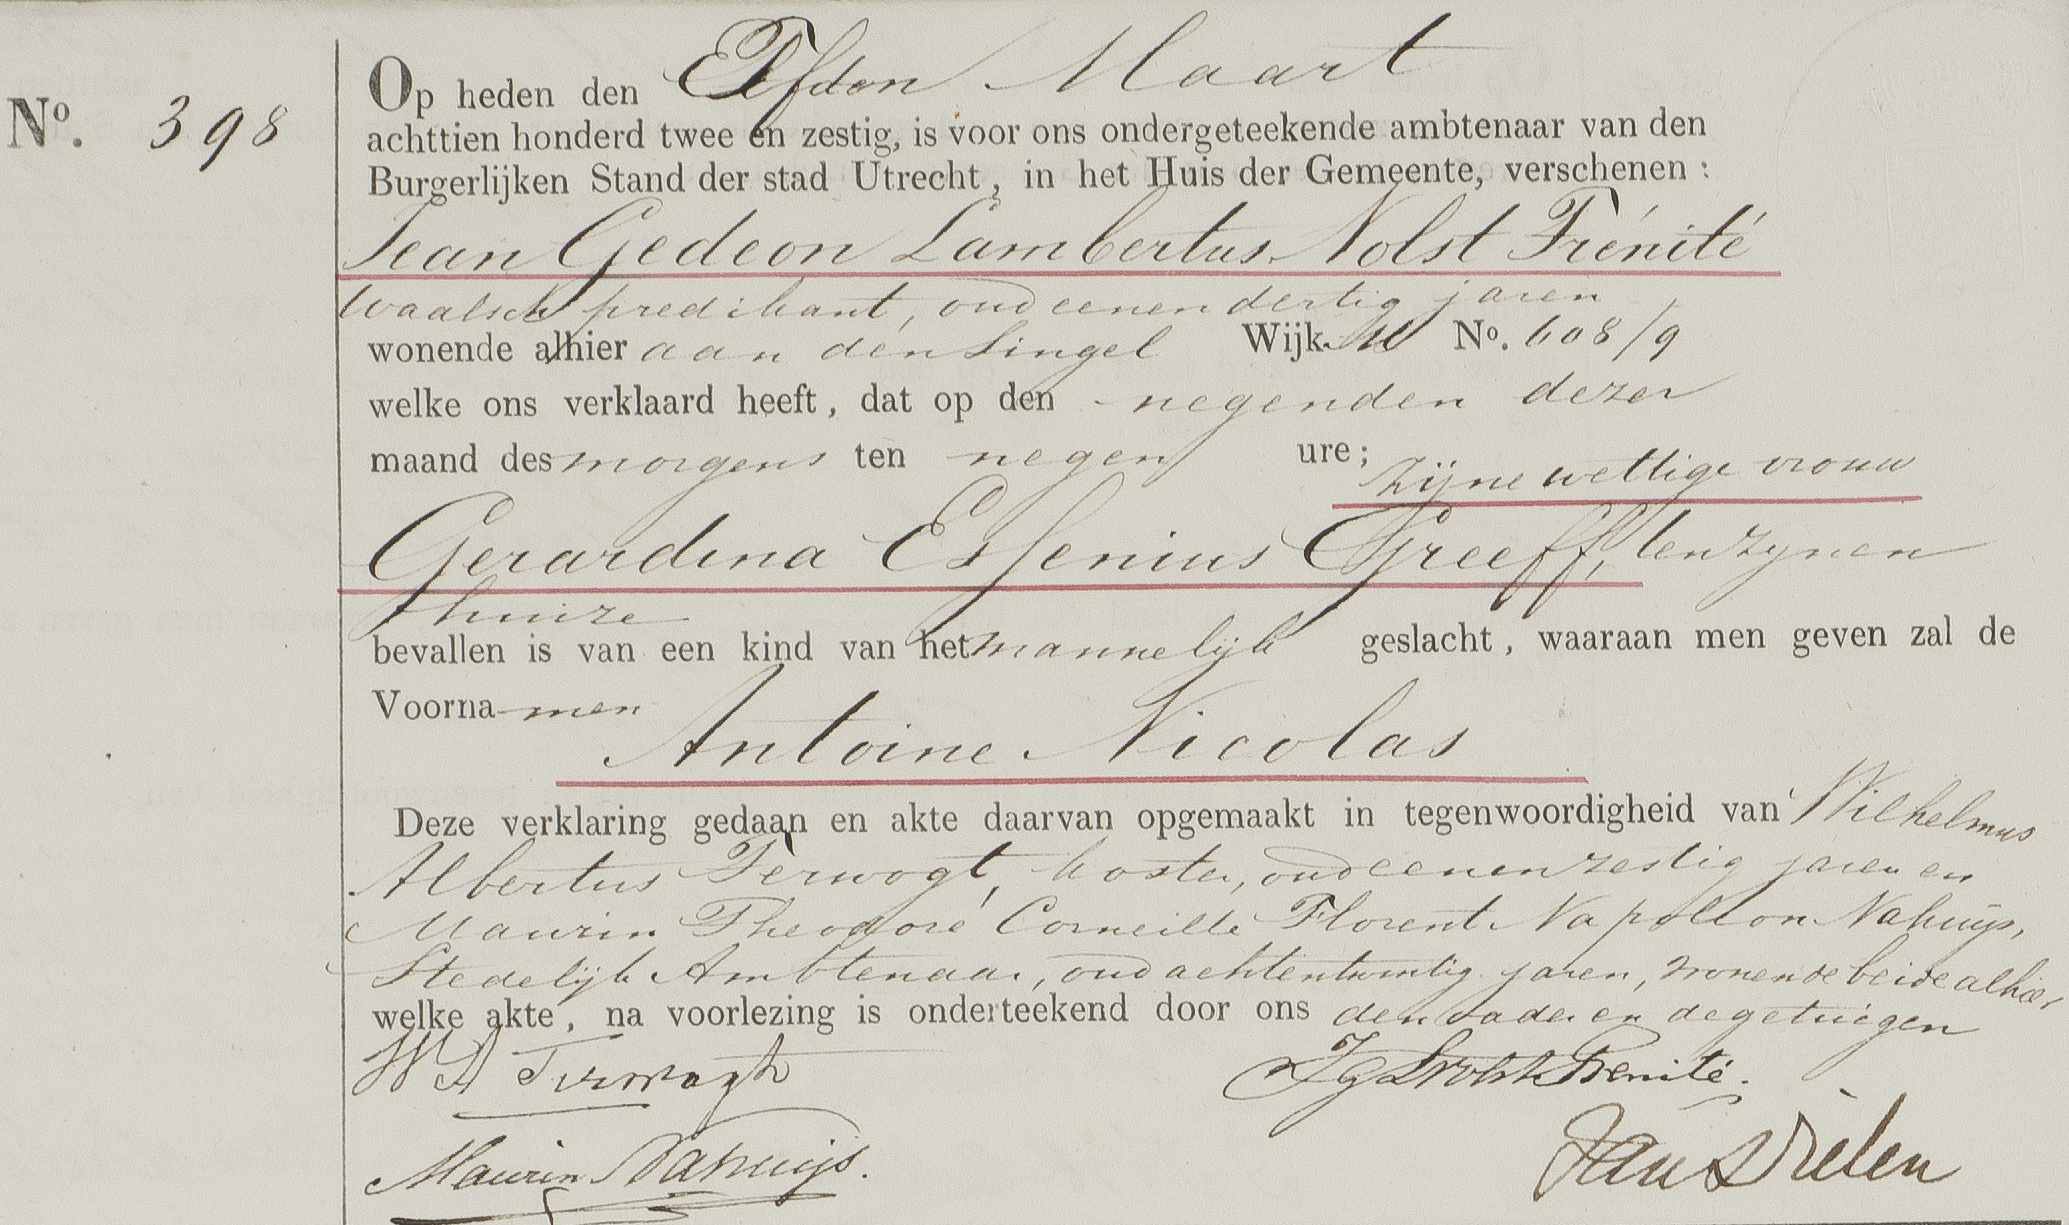 Op heden den Elfden Maart
Nº. 398
achttien honderd twee en zestig, is voor ons ondergeteekende ambtenaar van den
Burgerlijken Stand der stad Utrecht, in het Huis der Gemeente, verschenen:
Jean Gedeon Lambertus Nolst Trénité
Waalsch predikant, oud eenendertig jaren
wonende alhier aan den Singel Wijk M Nº. 608/9
welke ons verklaard heeft, dat op den negenden dezer
maand des morgens ten negen ure; Zijne wettige vrouw
Gerardina Essenius Greeff, ten zynen
huize
bevallen is van een kind van het mannelijk geslacht, waaraan men geven zal de
Voornamen
Antoine Nicolas
Deze verklaring gedaan en akte daarvan opgemaakt in tegenwoordigheid van Wilhelmus
Albertus Terwogt, koster, oud eenenzestig jaren en
Maurin Theodore Corneille Florent Napoleon Nahuijs,
Stedelijk Ambtenaar, oud achtentwintig jaren, wonende beide alhier
welke akte, na voorlezing is onderteekend door ons den vader en de getuigen
W A Terwogt
J G L Nolst Trenité.
Maurin Nahuijs.